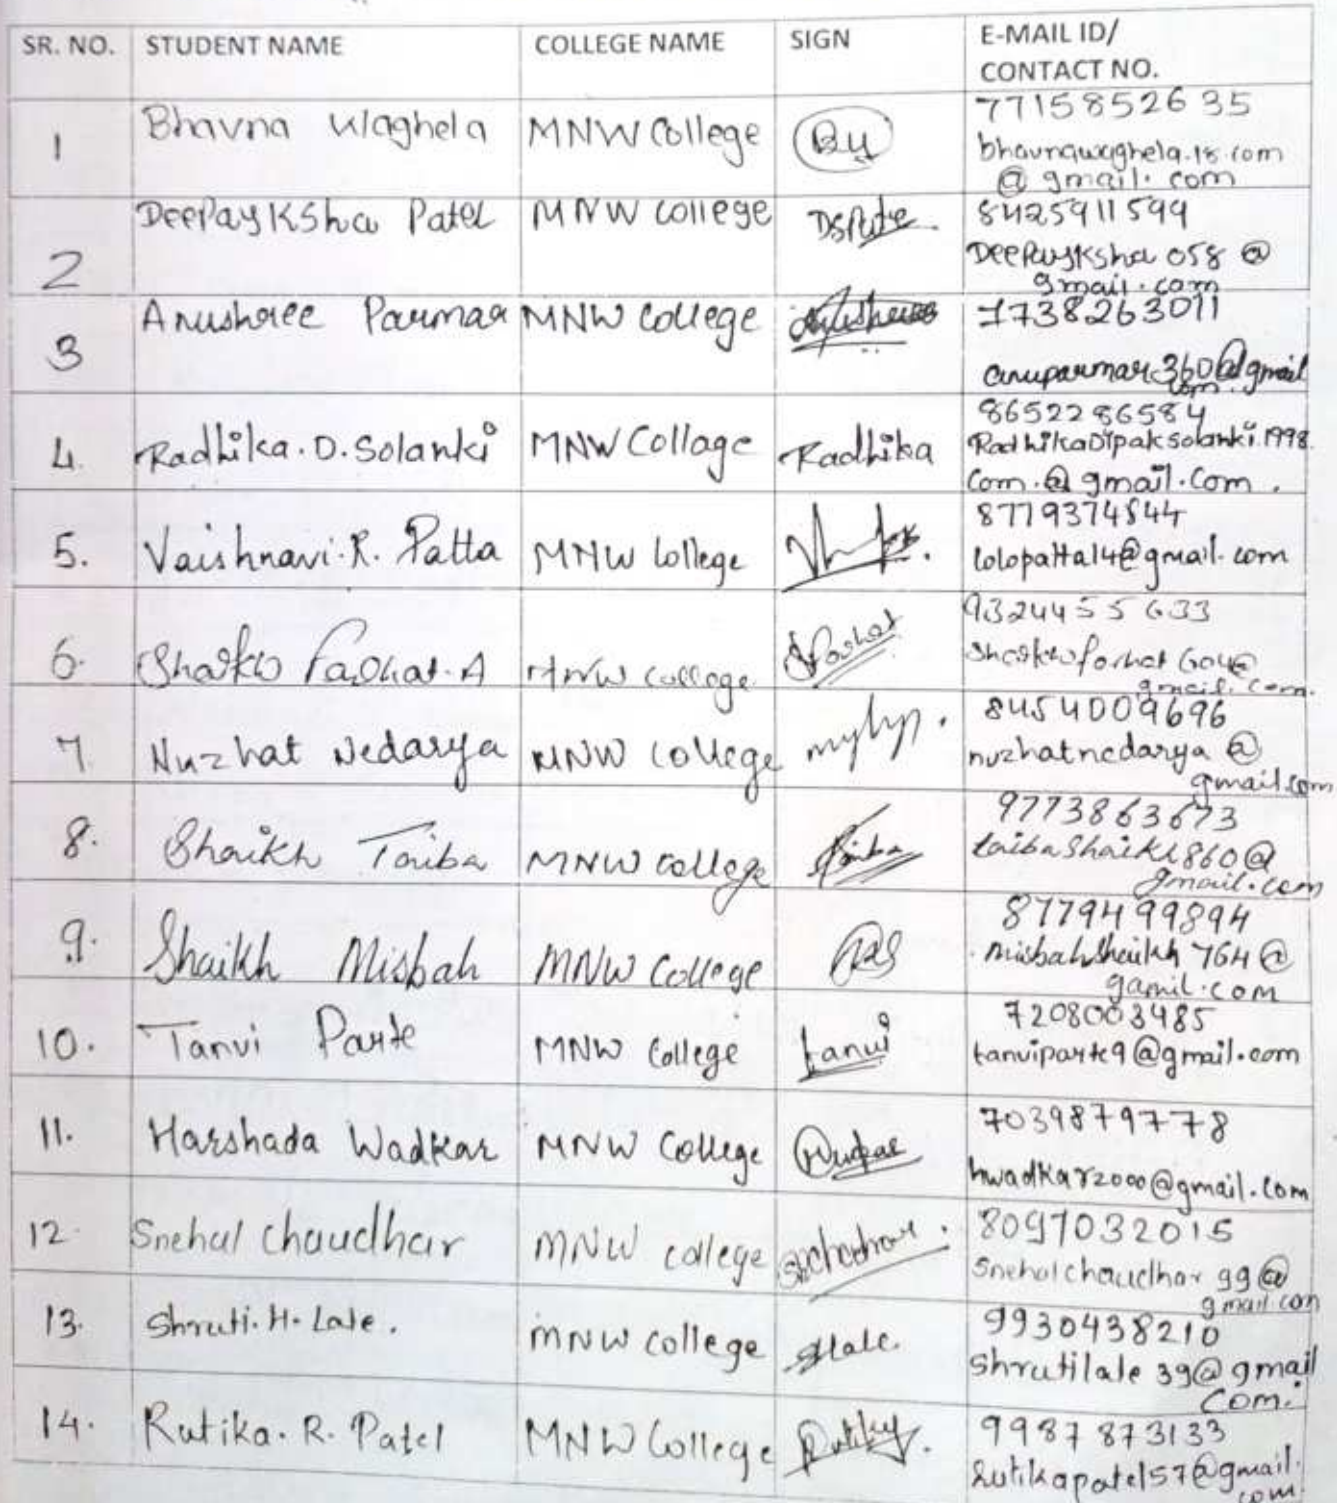 SR. NO. STUDENT NAME COLLEGE NAME SIGN E-MAIL ID/
CONTACT NO.
1 Bhavna Waghela MNW College 7715852635
bhavnawaghela.18.com
@ gmail. com
2 DeePayKSha Patel MNW College 8425911599
DeePayKsha 058 @
gmail.com
3 Anushree Parmar MNW College 7738263011
anuparmar360@gmail
com.
4. Radhika. D. Solanki MNW Collage Radhika 8652286584
RadhikaDipaksolanki.1998.
Com.@ gmail.Com.
5. Vaishnavi. R. Patta MNW College 8779374544
lolopatta14@gmail.com
6. Farhat. A MNW College 9324455633
gmail.com.
7. Nuzhat Nedarya MNW College 8454009696
nuzhatnedarya @
gmail.com
8. Shaikh Taiba MNW College Taiba 9773863673
taibashaikh860@
gmail.com
9. Shaikh Misbah MNW College 8779499894
misbahshaikh 764@
gamil.com
10. Tanvi Parte MNW College tanvi 7208003485
tanviparte9@gmail.com
11. Harshada Wadkar MNW College 7039879778
hwadkar2000@gmail.com
12. Snehal Chaudhar MNW College 8097032015
Snehalchaudhar 99@
gmail com
13. Shruti. H. Late. MNW College Slate. 9930438210
Shrutilate 39@gmail
Com.
14. Rutika. R. Patel MNW College 9987873133
rutikapatel57@gmail.
com